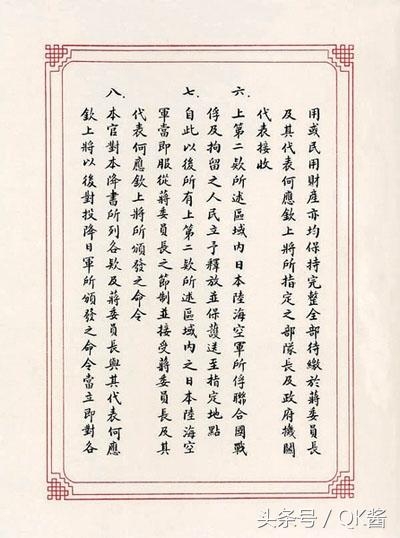 用或民用財產亦均保持完整全部待繳於蔣委員長
及其代表何應欽上將所指定之部隊長及政府機關
代表接收
六．上第二款所述區域內日本陸海空軍所俘聯合國戰
俘及拘留之人民立予釋放並保護送至指定地點
七．自此以後所有上第二款所述區域內之日本陸海空
軍當即服從蔣委員長之節制並接受蔣委員長及其
代表何應欽上將所頒發之命令
八．本官對本降書所列各款及蔣委員長與其代表何應
欽上將以後對投降日軍所頒發之命令當立即對各
头条号 / QK酱